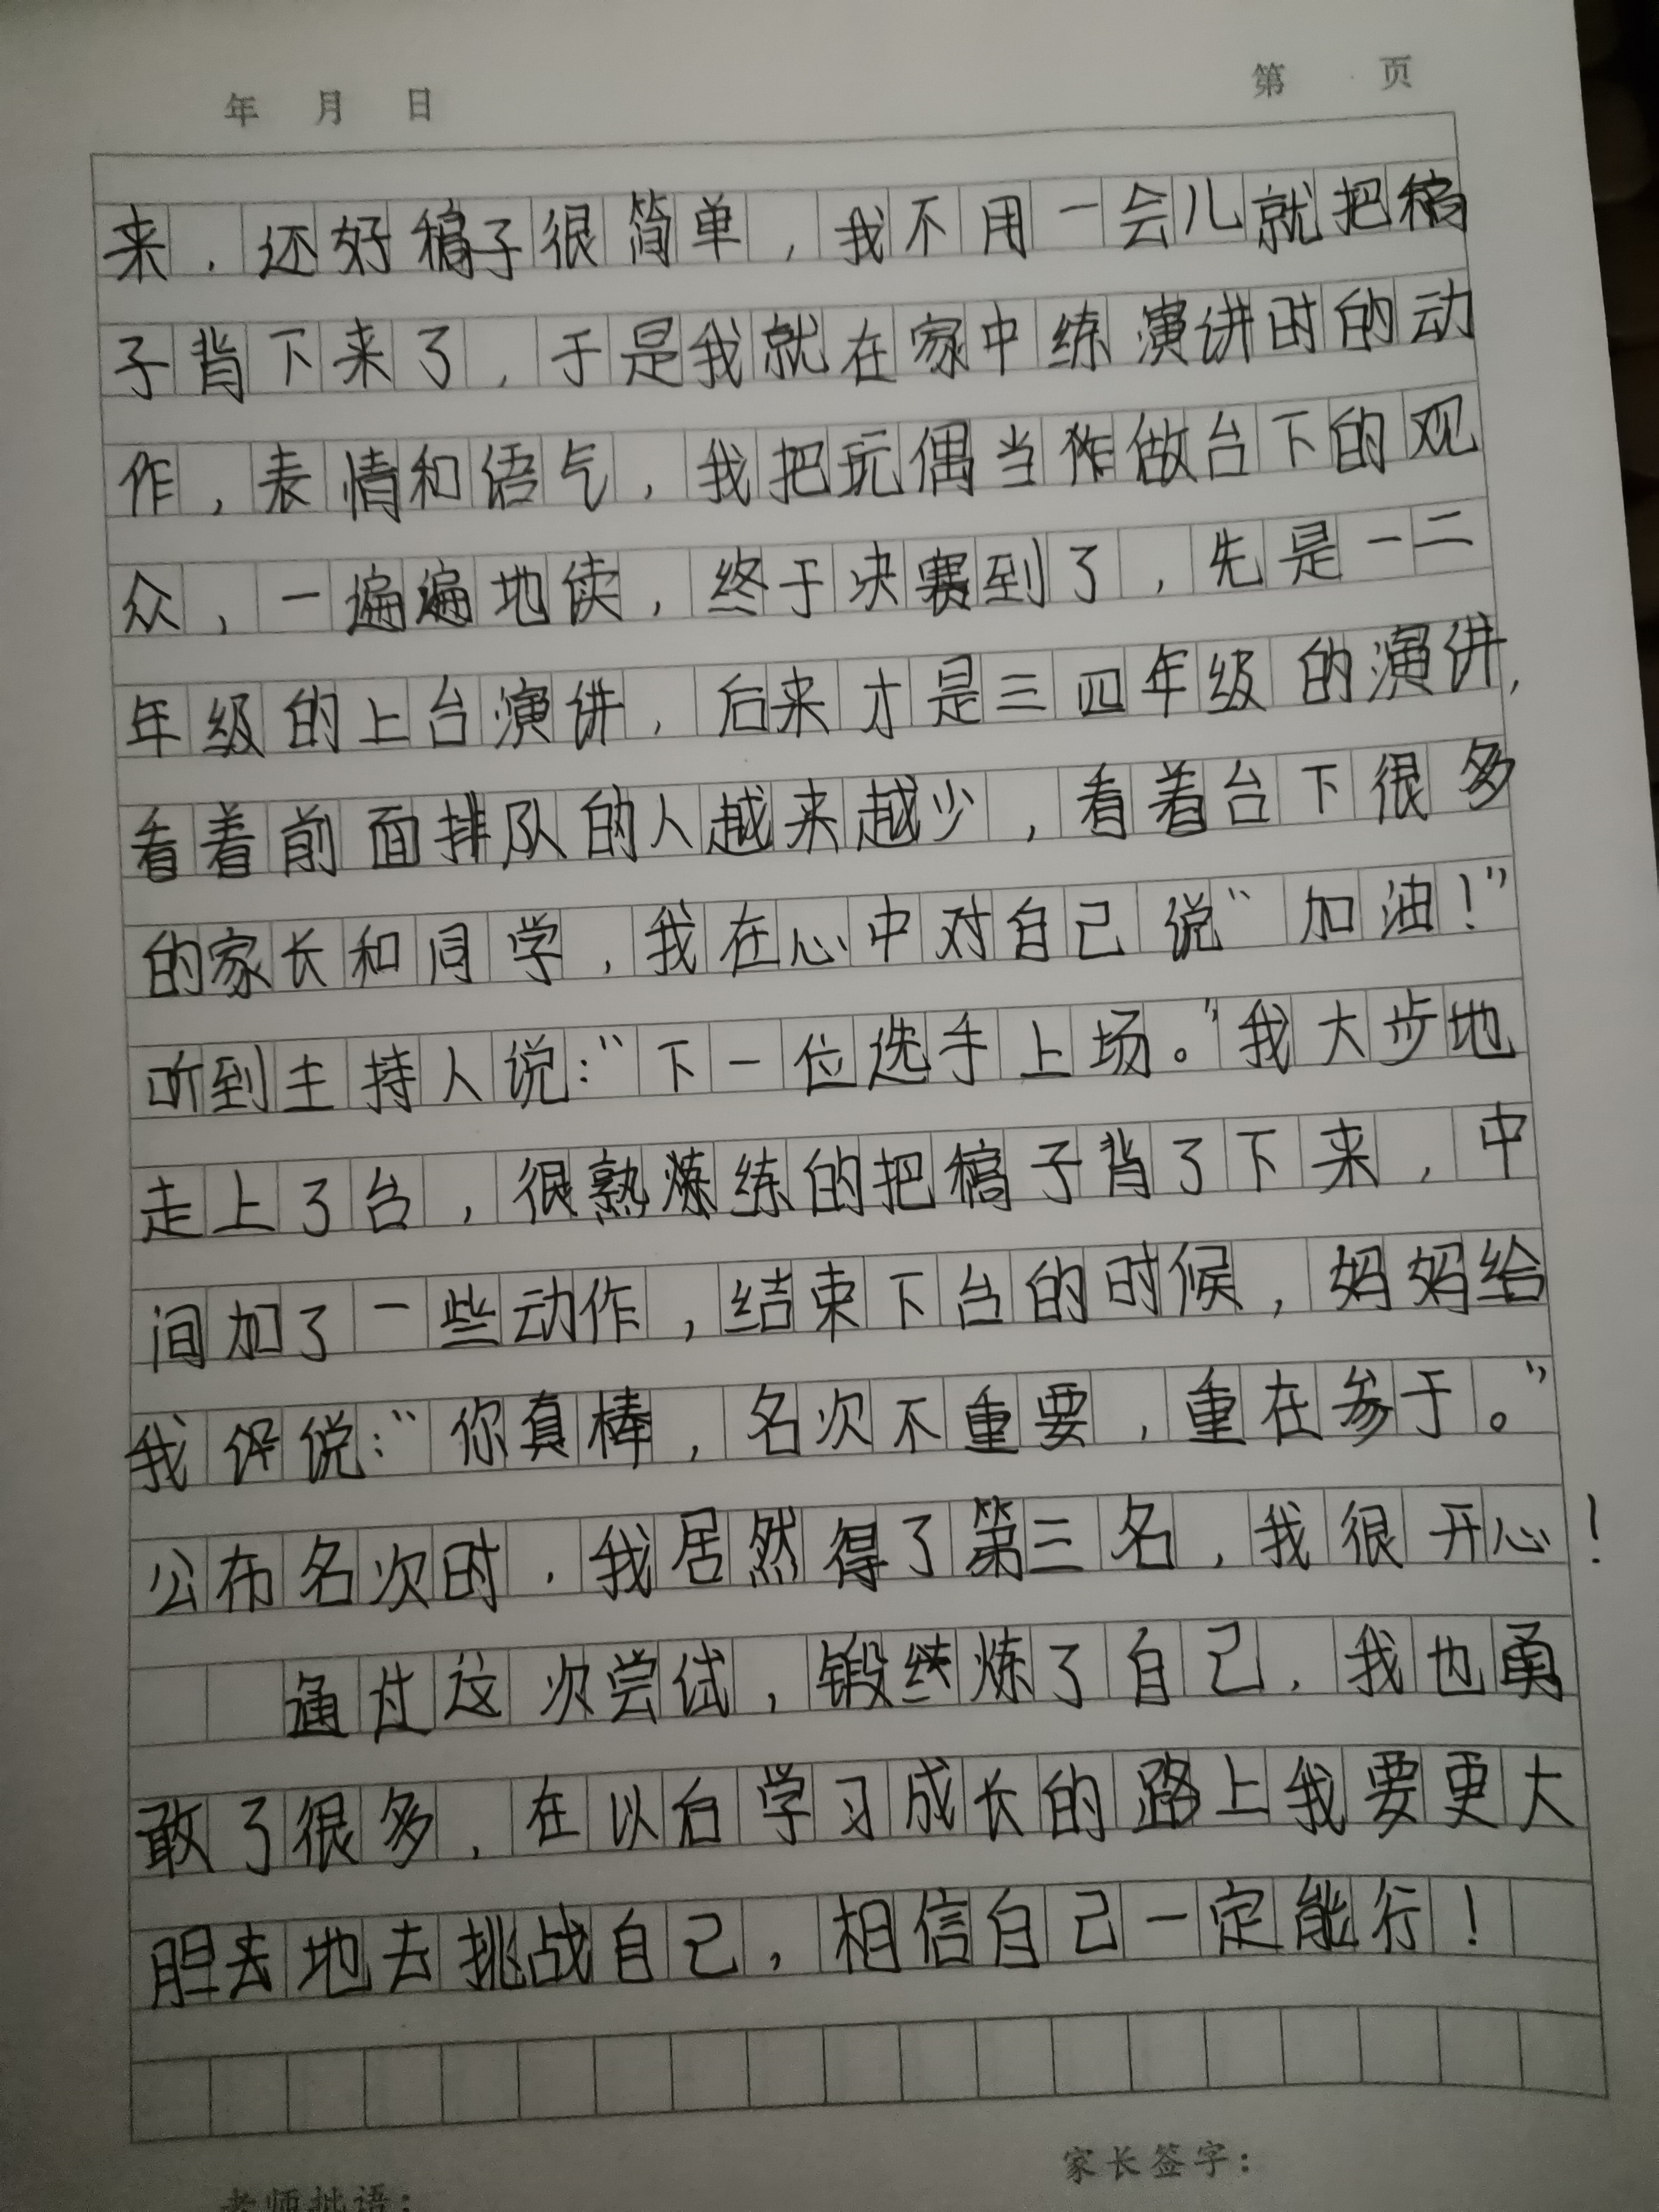 年 月 日 第 页
来，还好稿子很简单，我不用一会儿就把稿
子背下来了，于是我就在家中练演讲时的动
作，表情和语气，我把玩偶当作做台下的观
众，一遍遍地读，终于决赛到了，先是一二
年级的上台演讲，后来才是三四年级的演讲，
看着前面排队的人越来越少，看着台下很多
的家长和同学，我在心中对自己说“加油！”
听到主持人说：“下一位选手上场。”我大步地
走上了台，很熟炼练的把稿子背了下来，中
间加了一些动作，结束下台的时候，妈妈给
我评说：“你真棒，名次不重要，重在参于。”
公布名次时，我居然得了第三名，我很开心！
通过这次尝试，锻炼了自己，我也勇
敢了很多，在以后学习成长的路上我要更大
胆去地去挑战自己，相信自己一定能行！
家长签字：
老师批语：